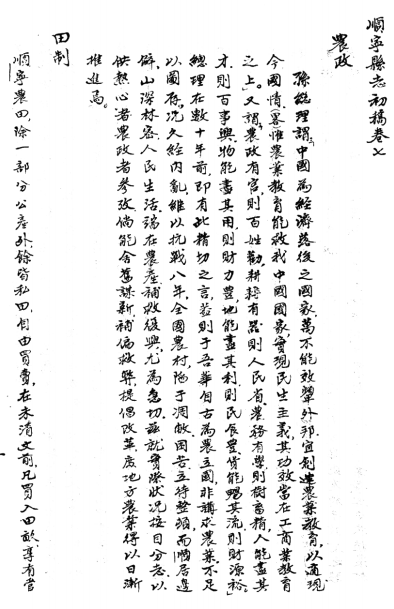 順寧縣志初稿卷七
農政
孫總理謂中國為經濟落後之國家萬不能效顰外邦宜創建農業教育以適現
今國情畧惟農業教育能救我中國國家實現民生主義其功效當在工商業教育
之上又謂農政有官則百姓勸耕耨有器則人民省農務有學則樹畜精人能盡其
才則百事興物能盡其用則財力豐地能盡其利則民食豐貨能暢其流則財源裕
總理在數十年前即有此精切之言益則于吾華自古為農立國非講求農業不足
以圖存況久經內亂繼以抗戰八年全國農村陷于凋敝困苦立待整頓而順居邊
僻山深林密人民生活端在農產補救復興尤為急切茲就實際狀況按目分志以
供熱心者農政者參改倘能舍舊謀新補偏救弊提倡改革庶地方農業得以日漸
推進焉
田制
順寧農田除一部分公產外餘皆私田自由買賣在未清丈前凡買入田畝享有管